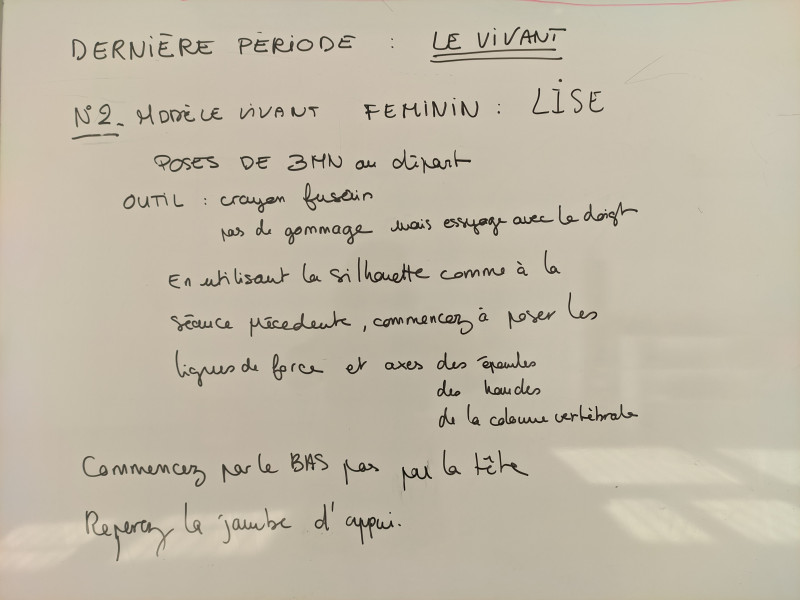 DERNIÈRE PÉRIODE : LE VIVANT
N°2. MODÈLE VIVANT FEMININ : LISE
POSES DE 3MN au départ
OUTIL : crayon fusain
pas de gommage mais essuyage avec le doigt
En utilisant la silhouette comme à la
séance précedente, commencez à poser les
lignes de force et axes des épaules
des hanches
de la colonne vertébrale
Commencez par le BAS pas par la tête
Reperez la jambe d'appui.